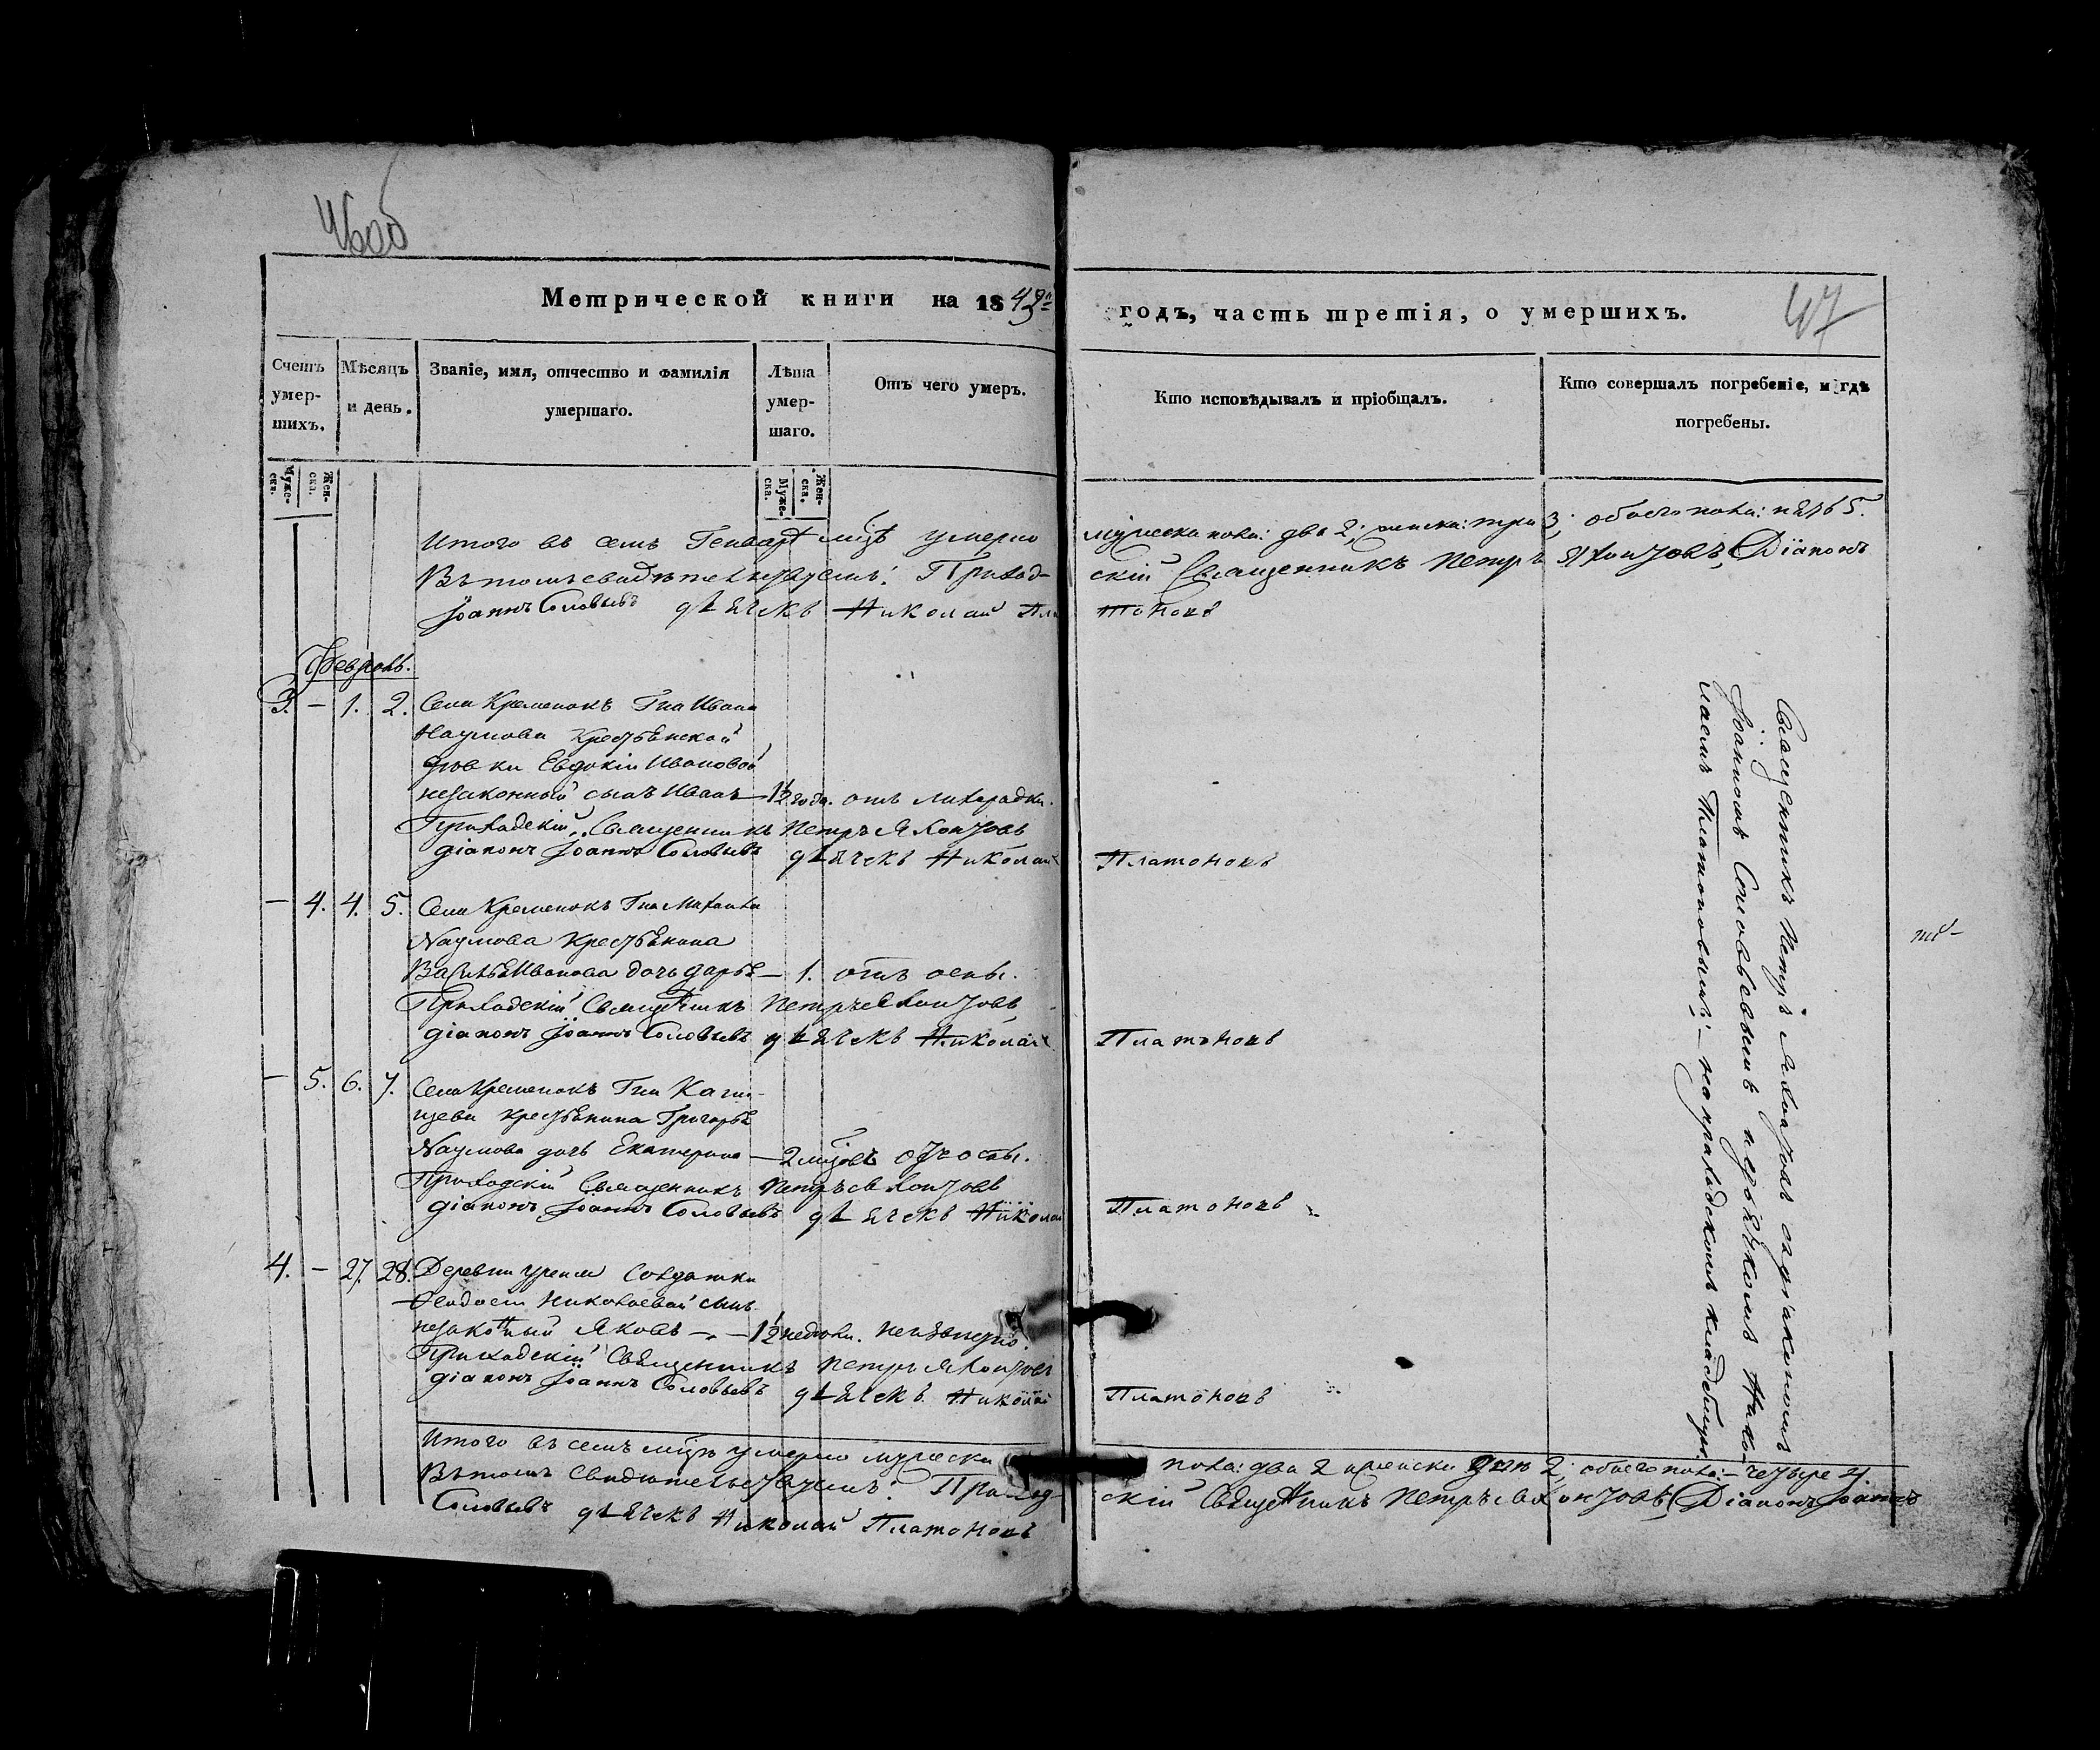 46об
Метрической книги на 1843
годъ, часть третія, о умершихъ.
47
Счетъ умер-шихъ.
Мѣсяцъ и день.
Званіе, имя, отчество и фамилія умершаго.
Лѣта умер-шаго.
Отъ чего умеръ.
Кто исповѣдывалъ и пріобщалъ.
Кто совершалъ погребеніе, и гдѣ погребены.
Муже-ска.
Жен-ска.
Муже-ска.
Жен-ска.
Итого въ семъ Генварѣ мцѣ умерло мужеска пола: два 2; женска: три 3; обоего пола: пять 5.
Въ томъ свидѣтельствуемъ: Приход-скій Священникъ Петръ Яхонтовъ, Діаконъ
Іоаннъ Соловьевъ дьячекъ Николай Платоновъ
Февраль.
3. – 1. 2. Села Кременокъ Гна Ивана
Наумова крестьянской
дѣвки Евдокіи Ивановой
незаконный сынъ Иванъ – 1½ года. отъ лихорадки.
Приходскій Священникъ Петръ Яхонтовъ
діаконъ Іоаннъ Соловьевъ дьячекъ Николай Платоновъ
– 4. 4. 5. Села Кременокъ Гна Михаила
Наумова крестьянина
Василья Иванова дочь Дарья – 1. отъ оспы.
Приходскій Священникъ Петръ Яхонтовъ
діаконъ Іоаннъ Соловьевъ дьячекъ Николай Платоновъ
– 5. 6. 7. Села Кременокъ Гна
крестьянина Григорья
Наумова дочь Екатерина – 2 мцовъ отъ оспы.
Приходскій Священникъ Петръ Яхонтовъ
діаконъ Іоаннъ Соловьевъ дьячекъ Николай Платоновъ
4. – 27. 28. Деревни Солдатки
Николаевой сынъ
незаконный Яковъ – 1½ недѣли. неизвѣстно.
Приходскій Священникъ Петръ Яхонтовъ
діаконъ Іоаннъ Соловьевъ дьячекъ Николай Платоновъ
Итого въ семъ мцѣ умерло мужеска пола: два 2 женска два 2; обоего пола: – четыре 4.
Въ томъ свидѣтельствуемъ: Приход-скій Священникъ Петръ Яхонтовъ, Діаконъ Іоаннъ
Соловьевъ дьячекъ Николай Платоновъ
Священникъ Петръ Яхонтовъ съ діакономъ
Іоанномъ Соловьевымъ и дьячкомъ Нико-
лаемъ Платоновымъ: – на приходскомъ кладбищѣ.